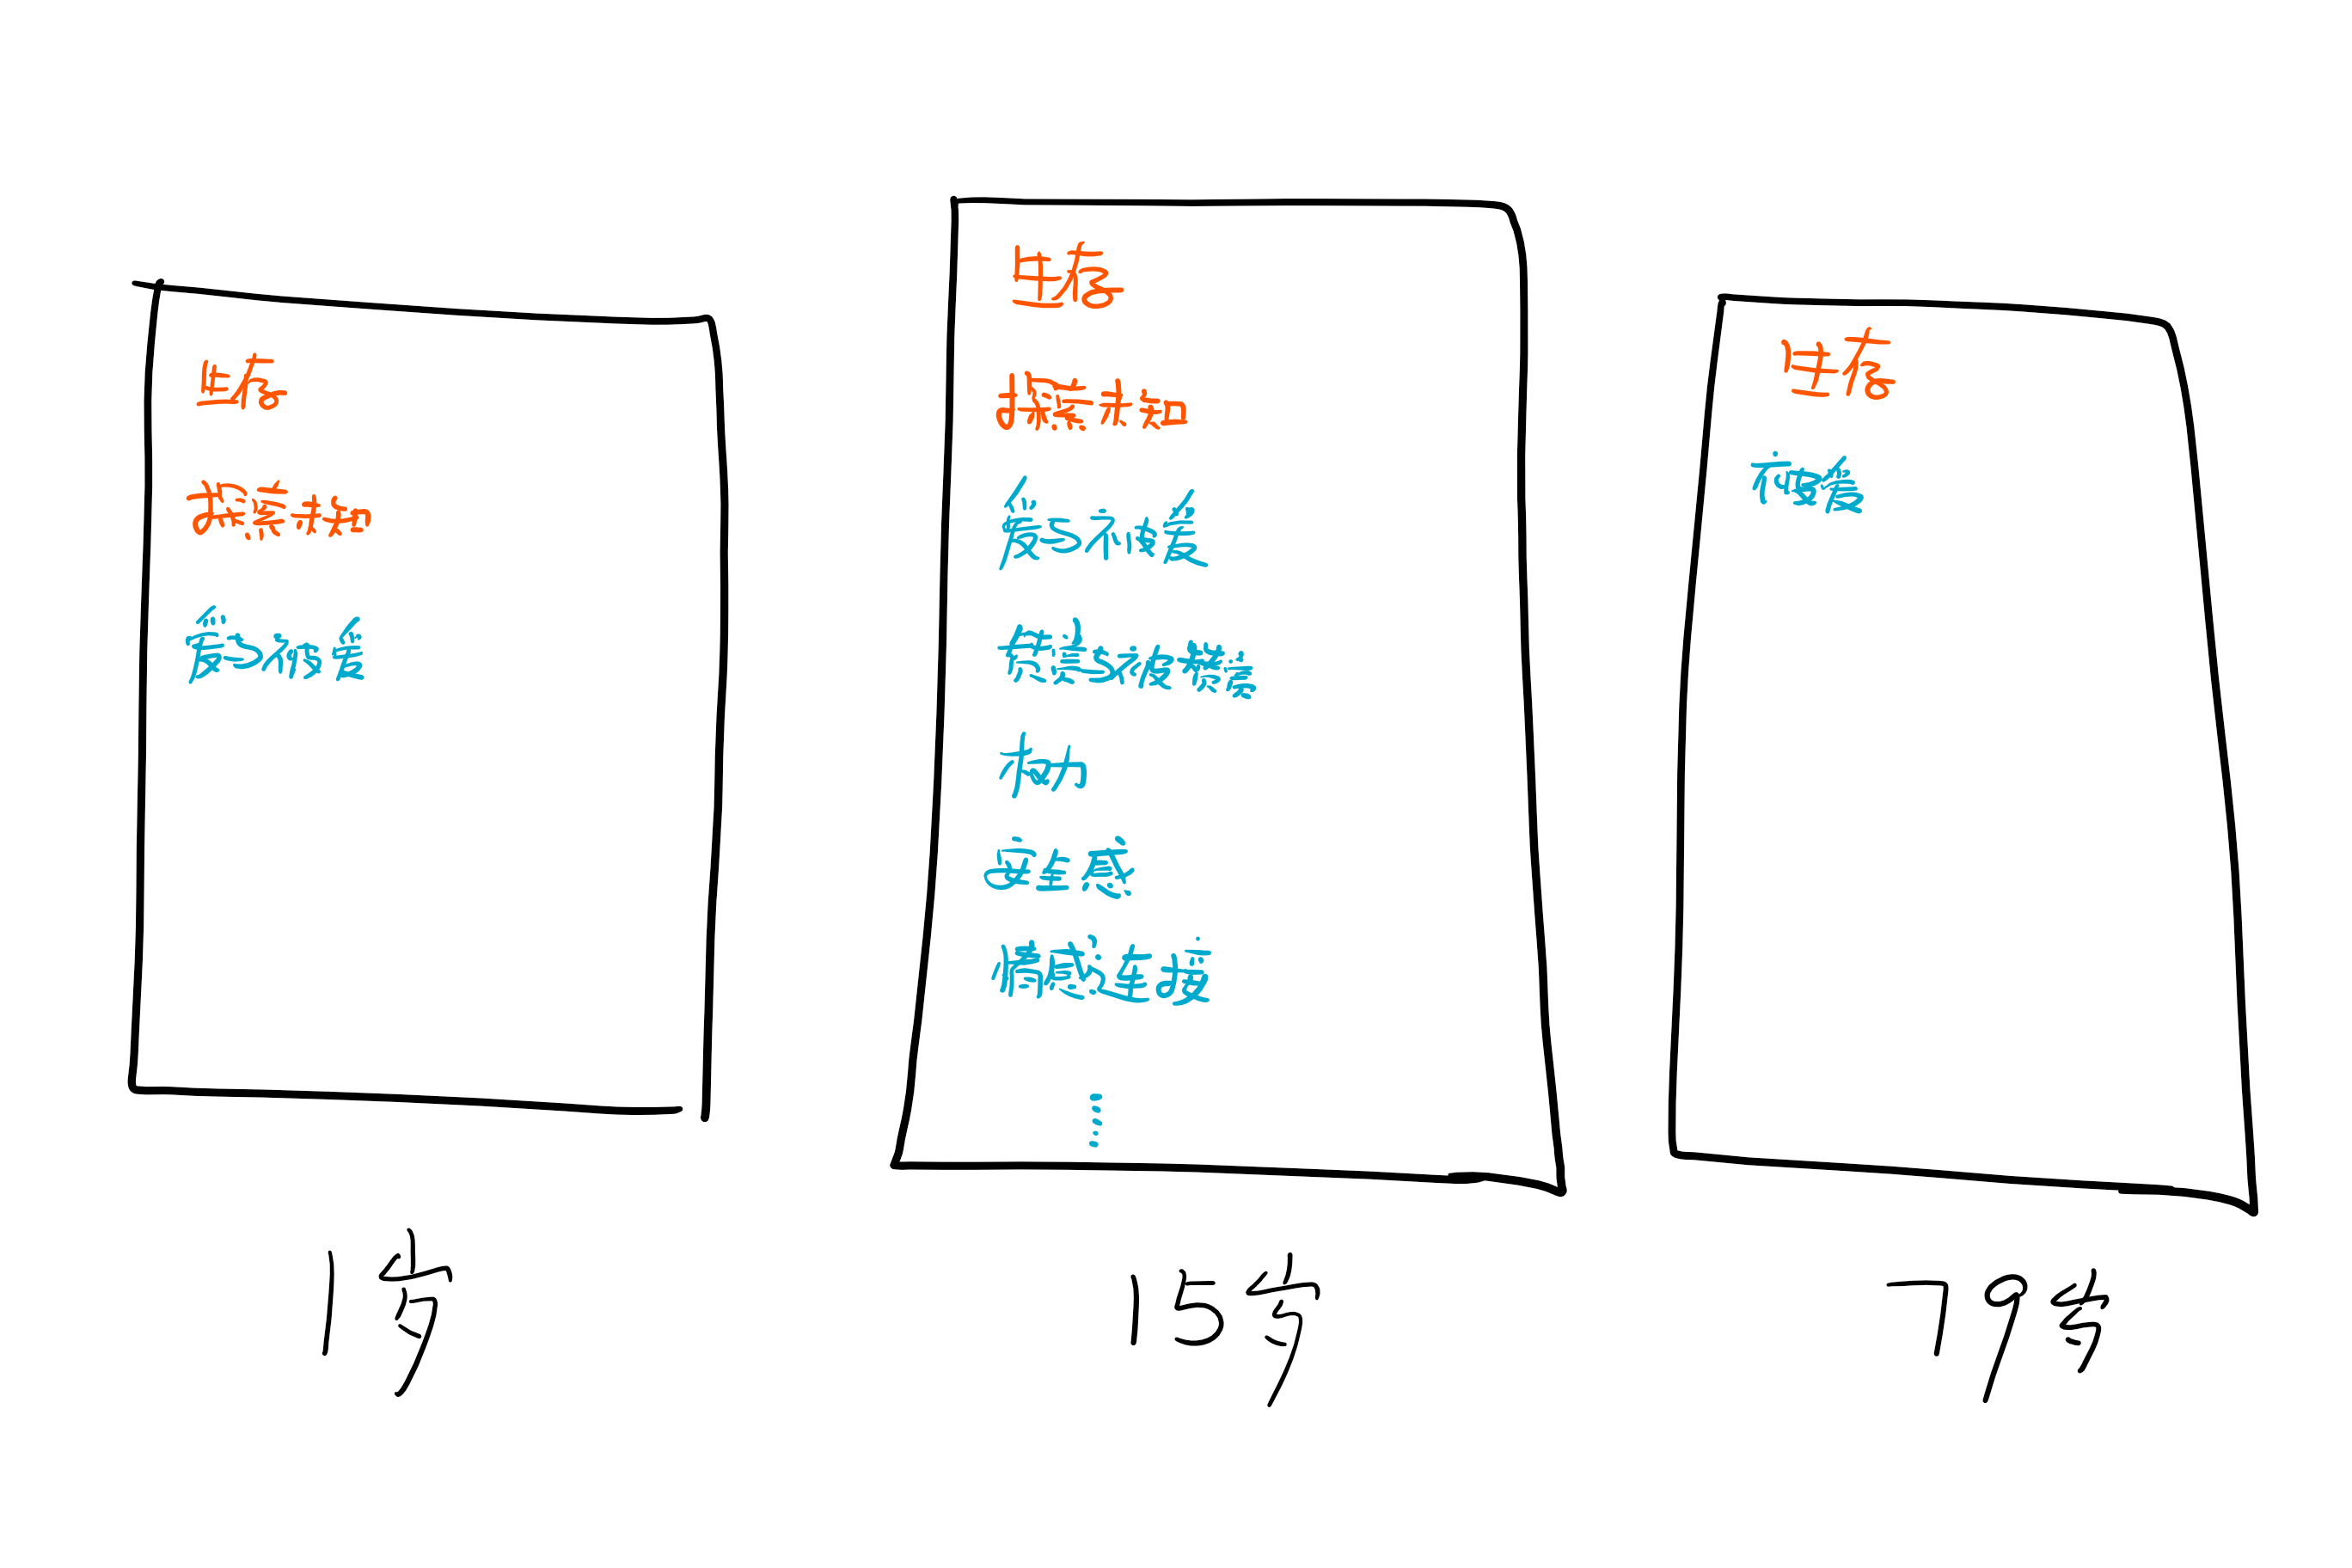 生存
探索未知
爱与被爱
1岁
生存
探索未知
爱与被爱
协
安全感
情感连接
15岁
生存
被爱
79岁